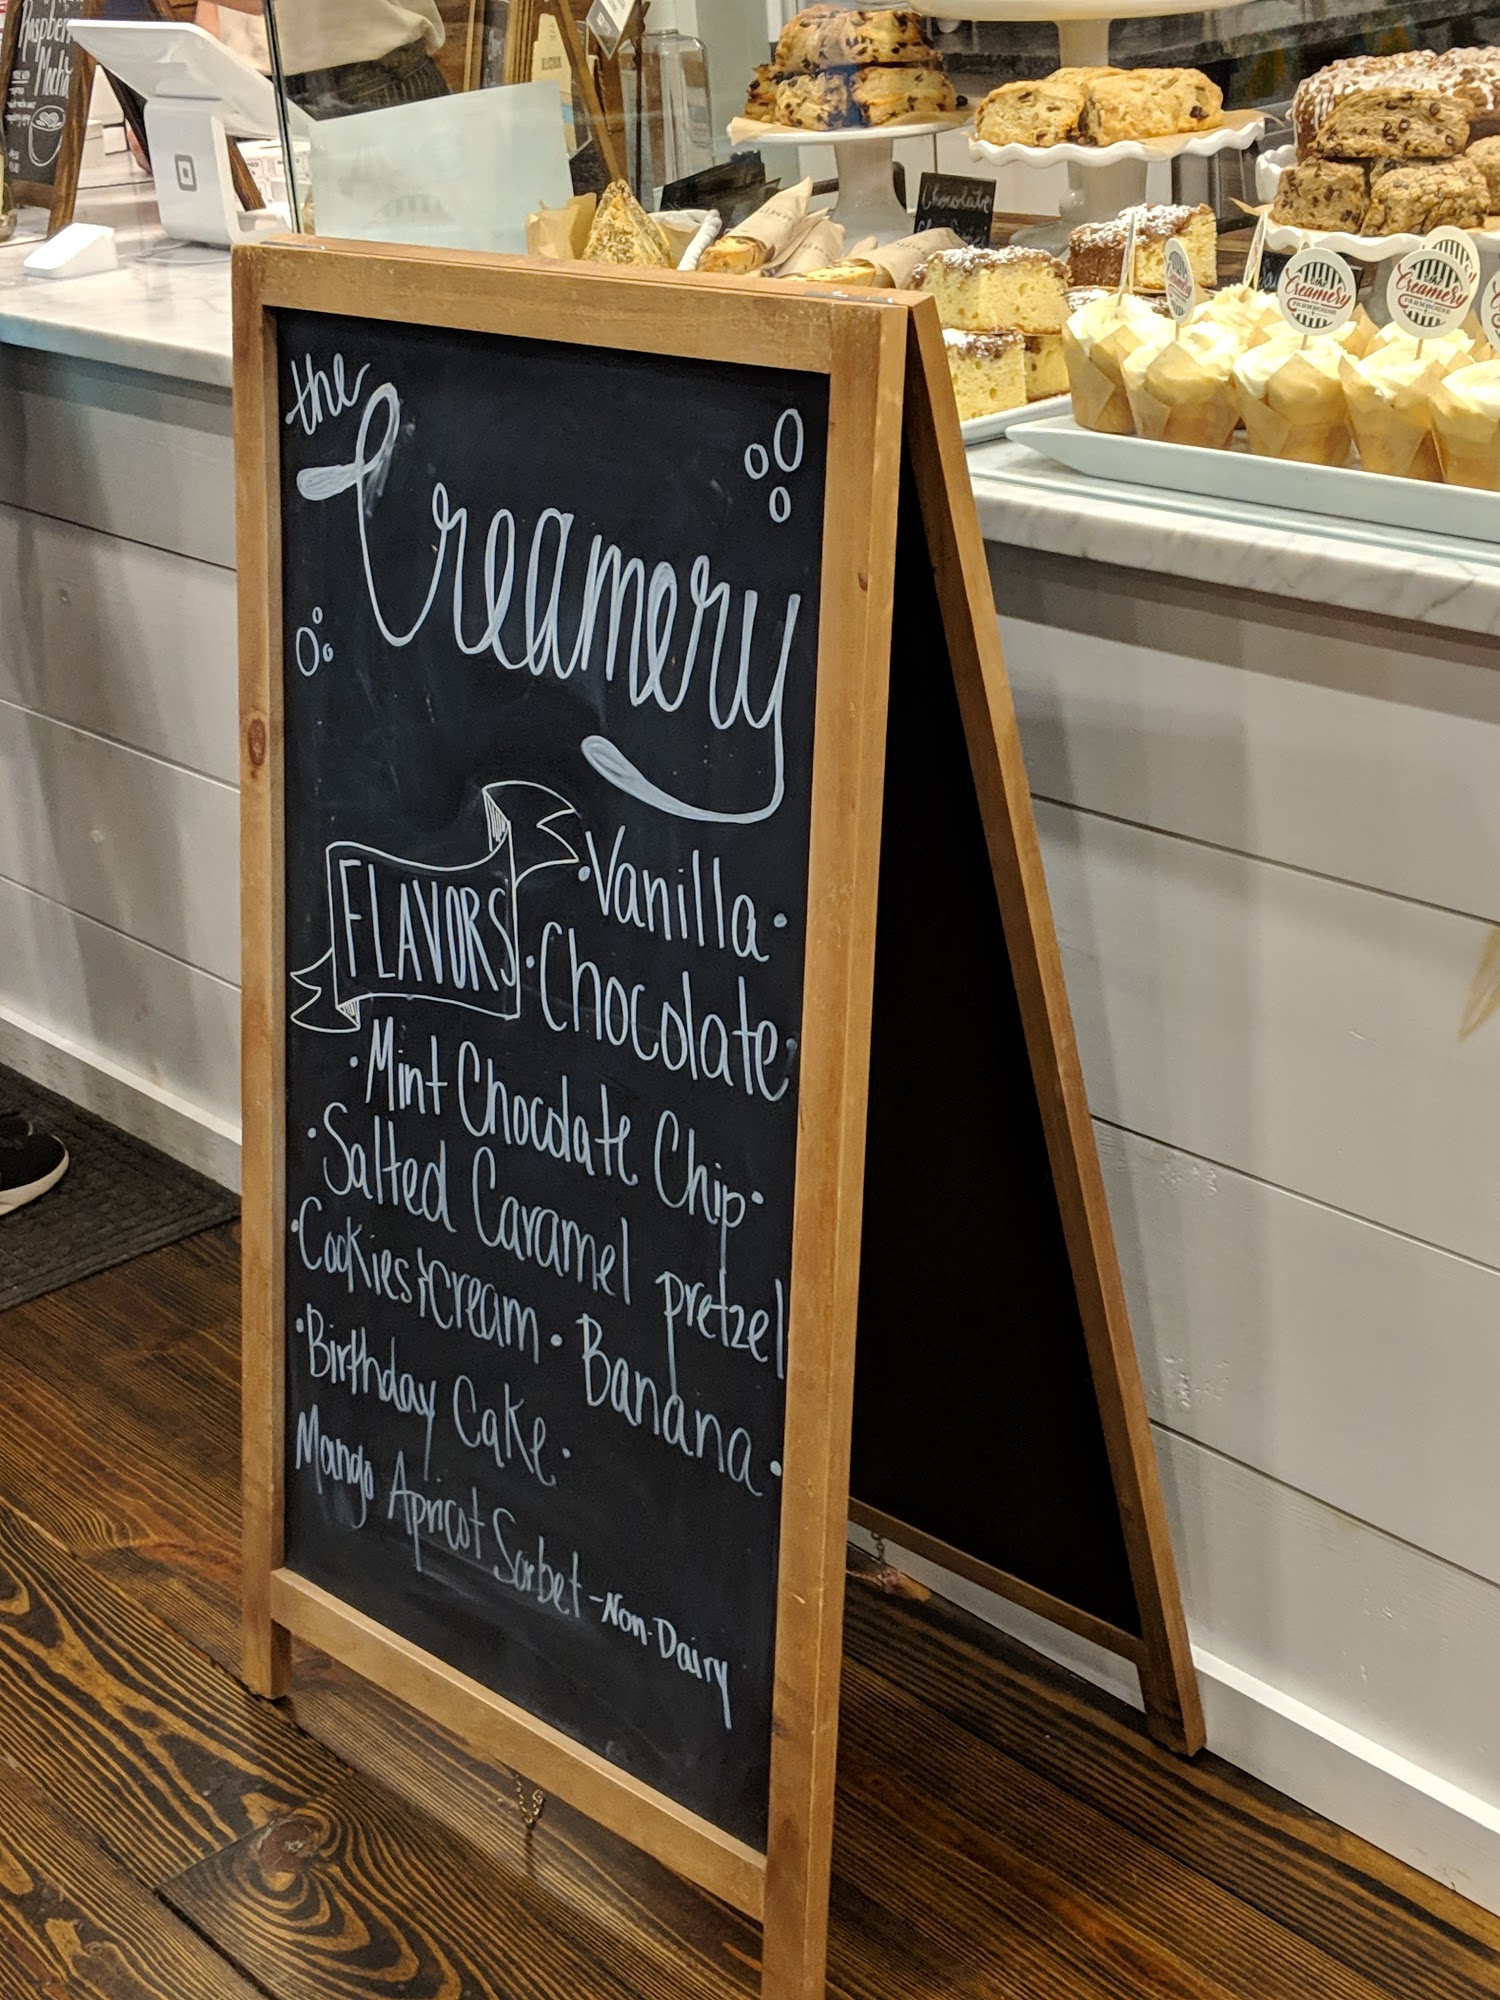 Raspberry
Mocha
Chocolate
the
Creamery
FARMHOUSE
the
Creamery
FARMHOUSE
the
Creamery
FLAVORS
•Vanilla•
•Chocolate•
•Mint Chocolate Chip•
•Salted Caramel pretzel
•Cookies & Cream • Banana •
•Birthday Cake •
Mango Apricot Sorbet - Non-Dairy